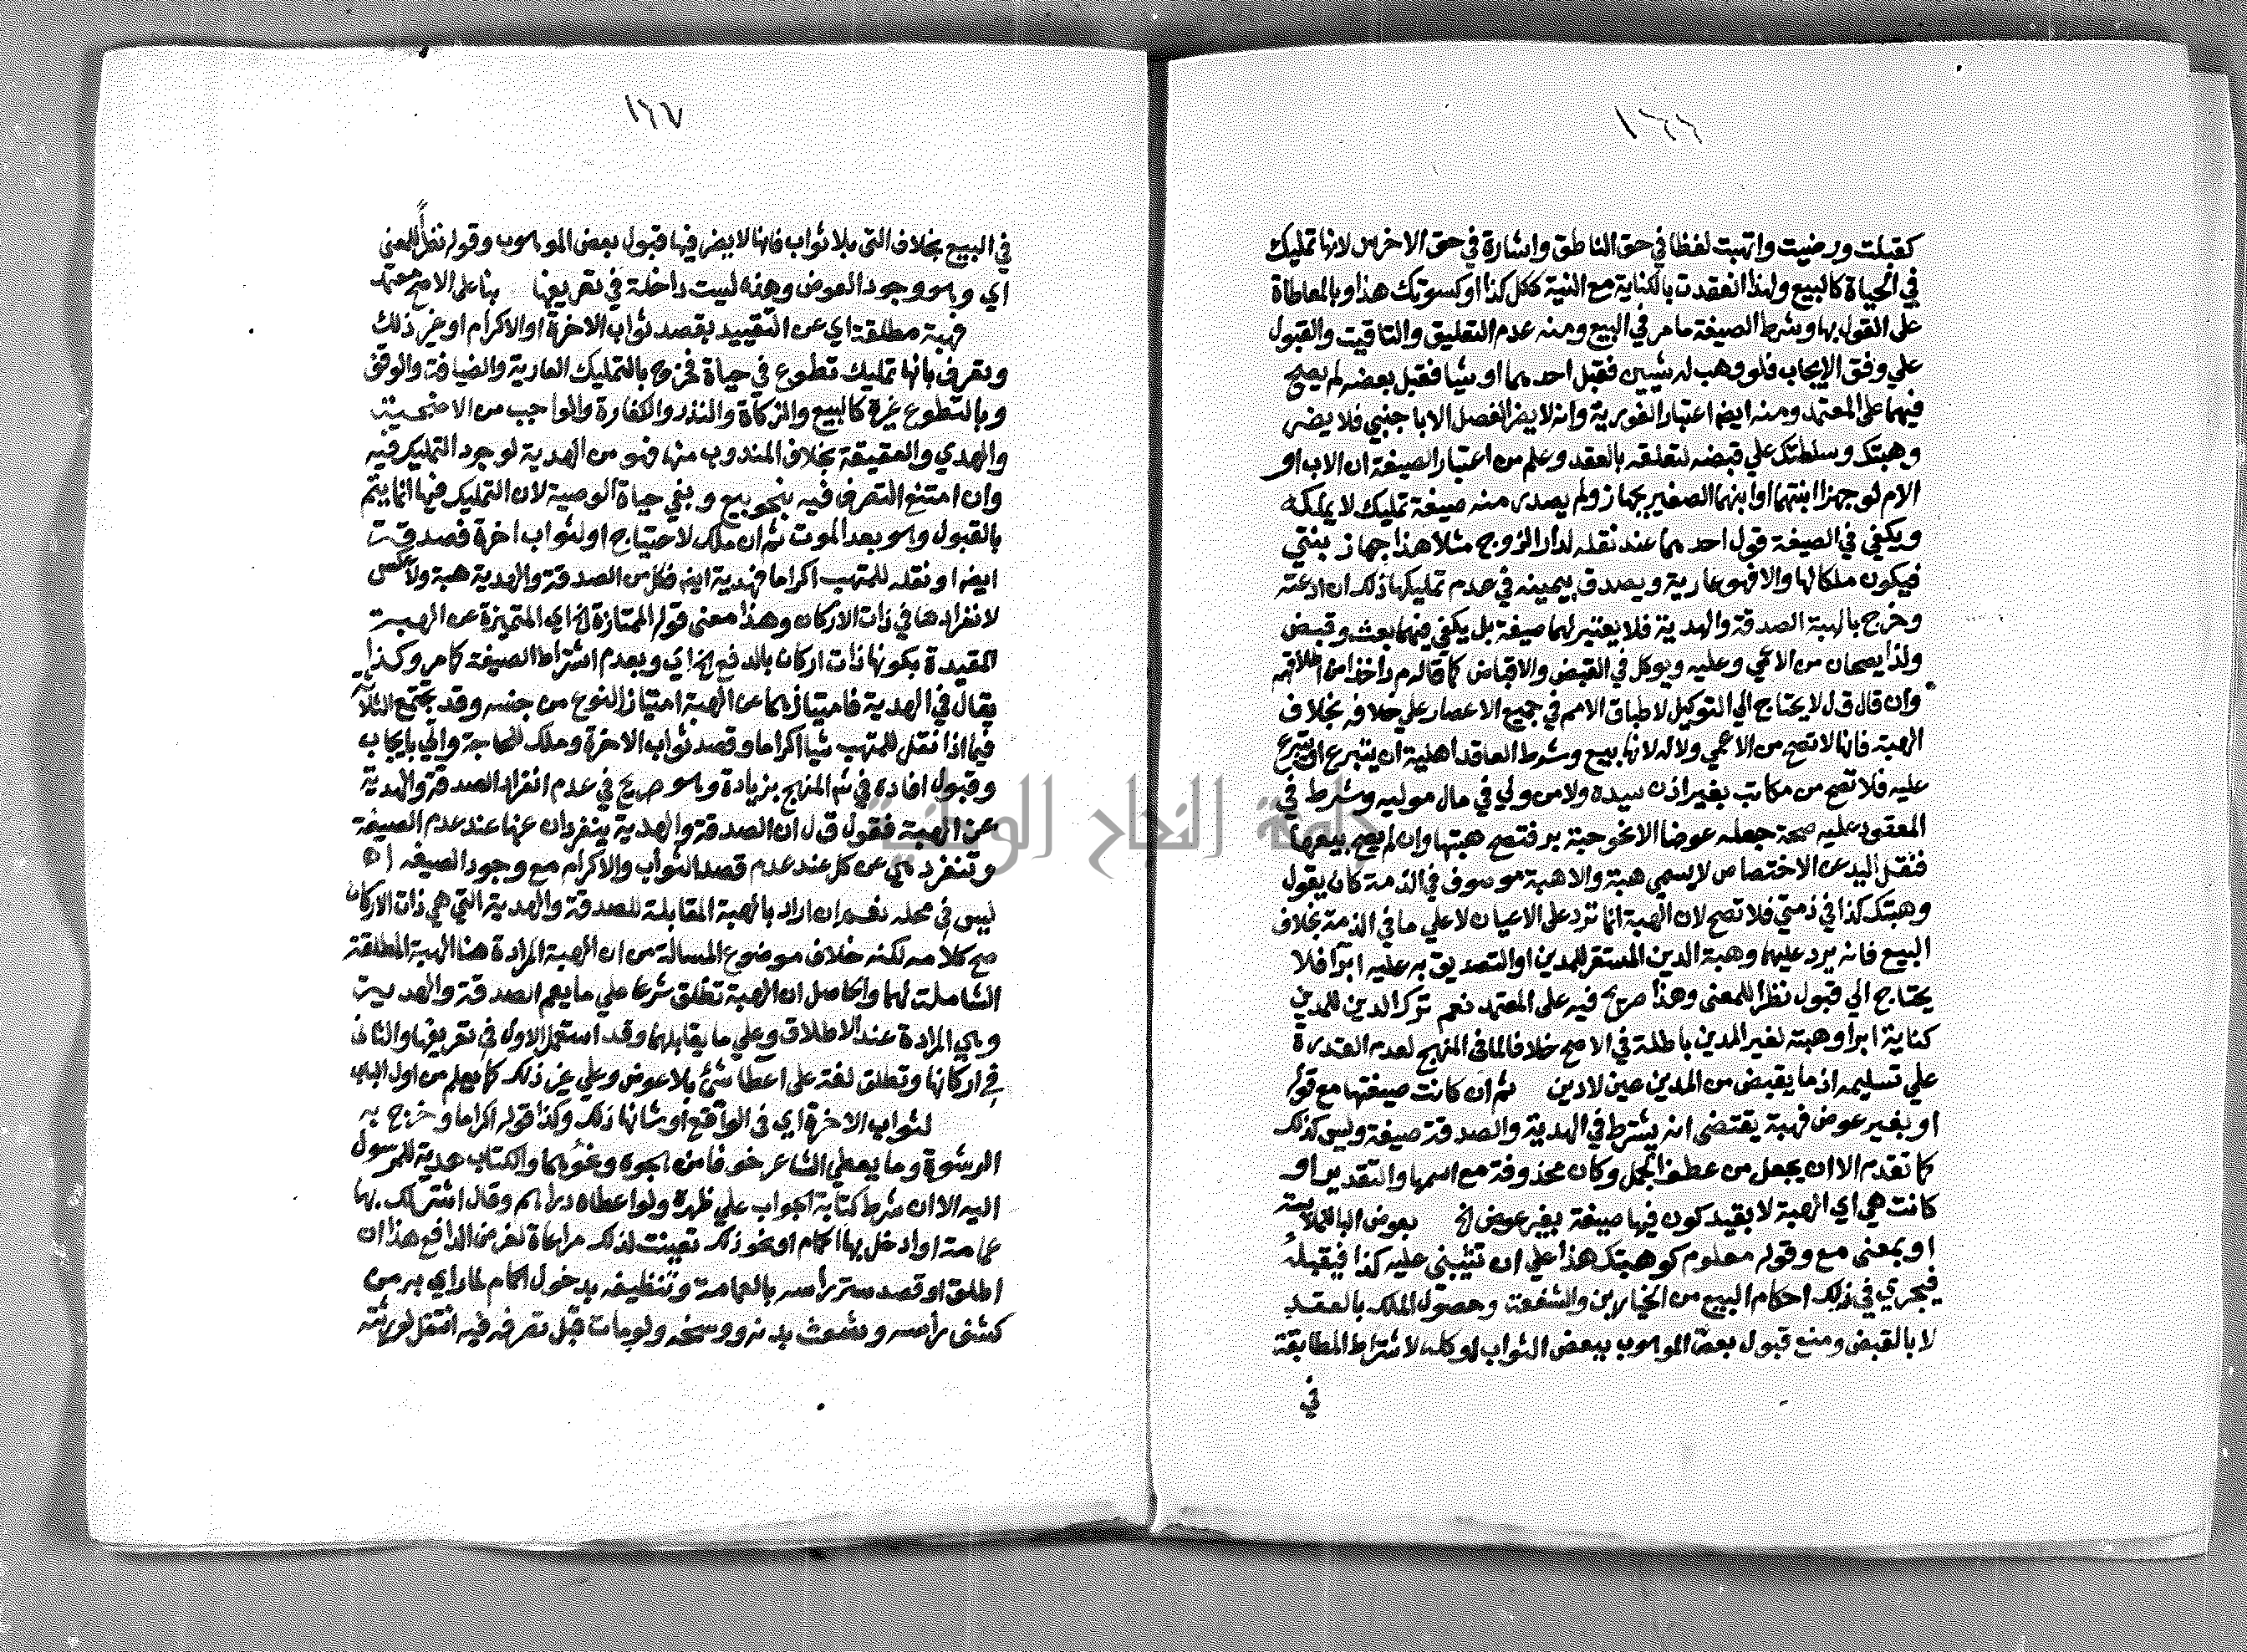 ١٦٦
كقبلت ورضيت واتهبت لفظا في حق الناطق واشارة في حق الاخرس لانها تمليك
في الحياة كالبيع ولهذا انعقدت بالكناية مع النية ككل كذا او كسوتك هذا وبالمعاطاة
على القول بها وشرط الصيغة ما مر في البيع ومنه عدم التعليق والتاقيت والقبول
علي وفق الايجاب فلو وهب له شيين فقبل احدهما او شيا فقبل بعضه لم يصح
فيهما على المعتمد ومنه ايضا اعتبار الفورية وانه لا يضر الفصل الا باجنبي فلا يضر
وهبتك وسلطتك علي قبضه لتعلقه بالعقد وعلم من اعتبار الصيغة ان الاب او
الام لو جهزا ابنتهما او ابنهما الصغير بجهاز ولم يصدر منه صيغة تمليك لا يملكه
ويكفي في الصيغة قول احدهما عند نقله لدار الزوج مثلا هذا جهاز بنتي
فيكون ملكا لها والا فهو عارية ويصدق بيمينه في عدم تمليكها ذلك ان ادعته
وخرج بالهبة الصدقة والهدية فلا يعتبر لهما صيغة بل يكفي فيهما بعث وقبض
ولذا يصحان من الاعمي وعليه ويوكل في القبض والاقباض كما قاله م ر اخذا من اطلاقهم
وان قال ق ل لا يحتاج الي التوكيل لاطباق الامم في جميع الاعصار علي خلافه بخلاف
الهبة فانها لا تصح من الاعمي ولا له لانها بيع وشرط العاقد اهلية ان يتبرع او يتبرع
عليه فلا تصح من مكاتب بغير اذن سيده ولا من ولي في مال موليه وشرط في
المعقود عليه صحة جعله عوضا الا نحو حبة بر فتصح هبتها وان لم يصح بيعها
فنقل اليد عن الاختصاص لا يسمي هبة والا هبة موصوف في الذمة كان يقول
وهبتك كذا في ذمتي فلا تصح لان الهبة انما ترد على الاعيان لا علي ما في الذمة بخلاف
البيع فانه يرد عليهما وهبة الدين المستقر للمدين او التصديق به عليه ابرا فلا
يحتاج الي قبول نظرا للمعنى وهذا صريح فيه على المعتمد نعم ترك الدين للمدين
كناية ابرا وهبته لغير المدين باطلة في الاصح خلافا لما في المنهج لعدم القدرة
علي تسليمه اذ ما يقبض من المدين عين لا دين ثم ان كانت صيغتها مع قوله
او بغير عوض فهبة يقتضى انه يشترط في الهدية والصدقة صيغة وليس كذلك
كما تقدم الا ان يجعل من عطف الجمل وكان محذوفة مع اسمها والتقدير او
كانت هي اي الهبة لا بقيد كون فيها صيغة بغير عوض الخ بعوض البا للملابسة
او بمعنى مع وقوله معلوم كوهبتك هذا علي ان تثيبني عليه كذا فيقبله
فيجري في ذلك احكام البيع من الخيارين والشفعة وحصول الملك بالعقد
لا بالقبض ومنع قبول بعض الموهوب ببعض الثواب او كله لاشتراط المطابقة
في
١٦٧
في البيع بخلاف التى بلا ثواب فانها لا يضر فيها قبول بعض الموهوب وقوله نظرا للمعنى
اي وهو وجود العوض وهذه ليست داخلة في تعريفها بنا على الاصح معتمد
فهبة مطلقة اي عن التقييد بقصد ثواب الاخرة او الاكرام او غير ذلك
وتعرف بانها تمليك تطوع في حياة فخرج بالتمليك العارية والضيافة والوقف
وبالتطوع غيره كالبيع والزكاة والنذر والكفارة والواجب من الاضحية
والهدي والعقيقة بخلاف المندوب منها فهو من الهدية لوجود التمليك فيه
وان امتنع التصرف فيه بنحو بيع وبفي حياة الوصية لان التمليك فيها انما يتم
بالقبول وهو بعد الموت ثم ان ملك لاحتياج او لثواب اخرة فصدقة
ايضا او نقله للمتهب اكراما فهدية ايضا فكل من الصدقة والهدية هبة ولا عكس
لانفرادها في ذات الاركان وهذا معنى قوله الممتازة الخ اي المتميزة عن الهبة
المقيدة بكونها ذات اركان بالدفع الخ اي وبعدم اشتراط الصيغة كما مر وكذا
يقال في الهدية فامتيازهما عن الهبة امتياز النوع من جنسه وقد تجتمع الثلاثة
فيما اذا نقل للمتهب شيا اكراما وقصد ثواب الاخرة وملك لحاجة واتي بايجاب
وقبول افاده في شم المنهج بزيادة وهو صريح في عدم انفراد الصدقة والهدية
عن الهبة فقول ق ل ان الصدقة والهدية ينفردان عنها عند عدم الصيغة
وتنفرد هي عن كل عند عدم قصد الثواب والاكرام مع وجود الصيغة اه
ليس في محله نعم ان اراد بالهبة المقابلة للصدقة والهدية التي هي ذات الاركان
صح كلامه لكنه خلاف موضوع المسالة من ان الهبة المرادة هنا الهبة المطلقة
الشاملة لهما والحاصل ان الهبة تطلق شرعا علي ما يعم الصدقة والهدية
وهي المرادة عند الاطلاق وعلي ما يقابلهما وقد استعمل الاول في تعريفها والثاني
في اركانها وتطلق لغة على اعطا شئ بلا عوض وعلي غير ذلك كما يعلم من اول الباب
لثواب الاخرة اي في الواقع او شانها ذلك وكذا قوله اكراما وخرج به
الرشوة وما يعطي الشاعر خوفا من هجوه ونحوهما والكتاب هدية للمرسول
اليه الا ان شرط كتابة الجواب علي ظهره ولو اعطاه دراهم وقال اشتر لك بها
عمامة او ادخل بها الحمام او نحو ذلك تعينت لذلك مراعاة لغرض الدافع هذا ان
اطلق او قصد ستر راسه بالعمامة وتنظيفه بدخول الحمام لما راي به من
كشف رأسه وشعث بدنه ووسخه ولو مات قبل تصرفه فيه انتقل لورثته
جامعة النجاح الوطنية